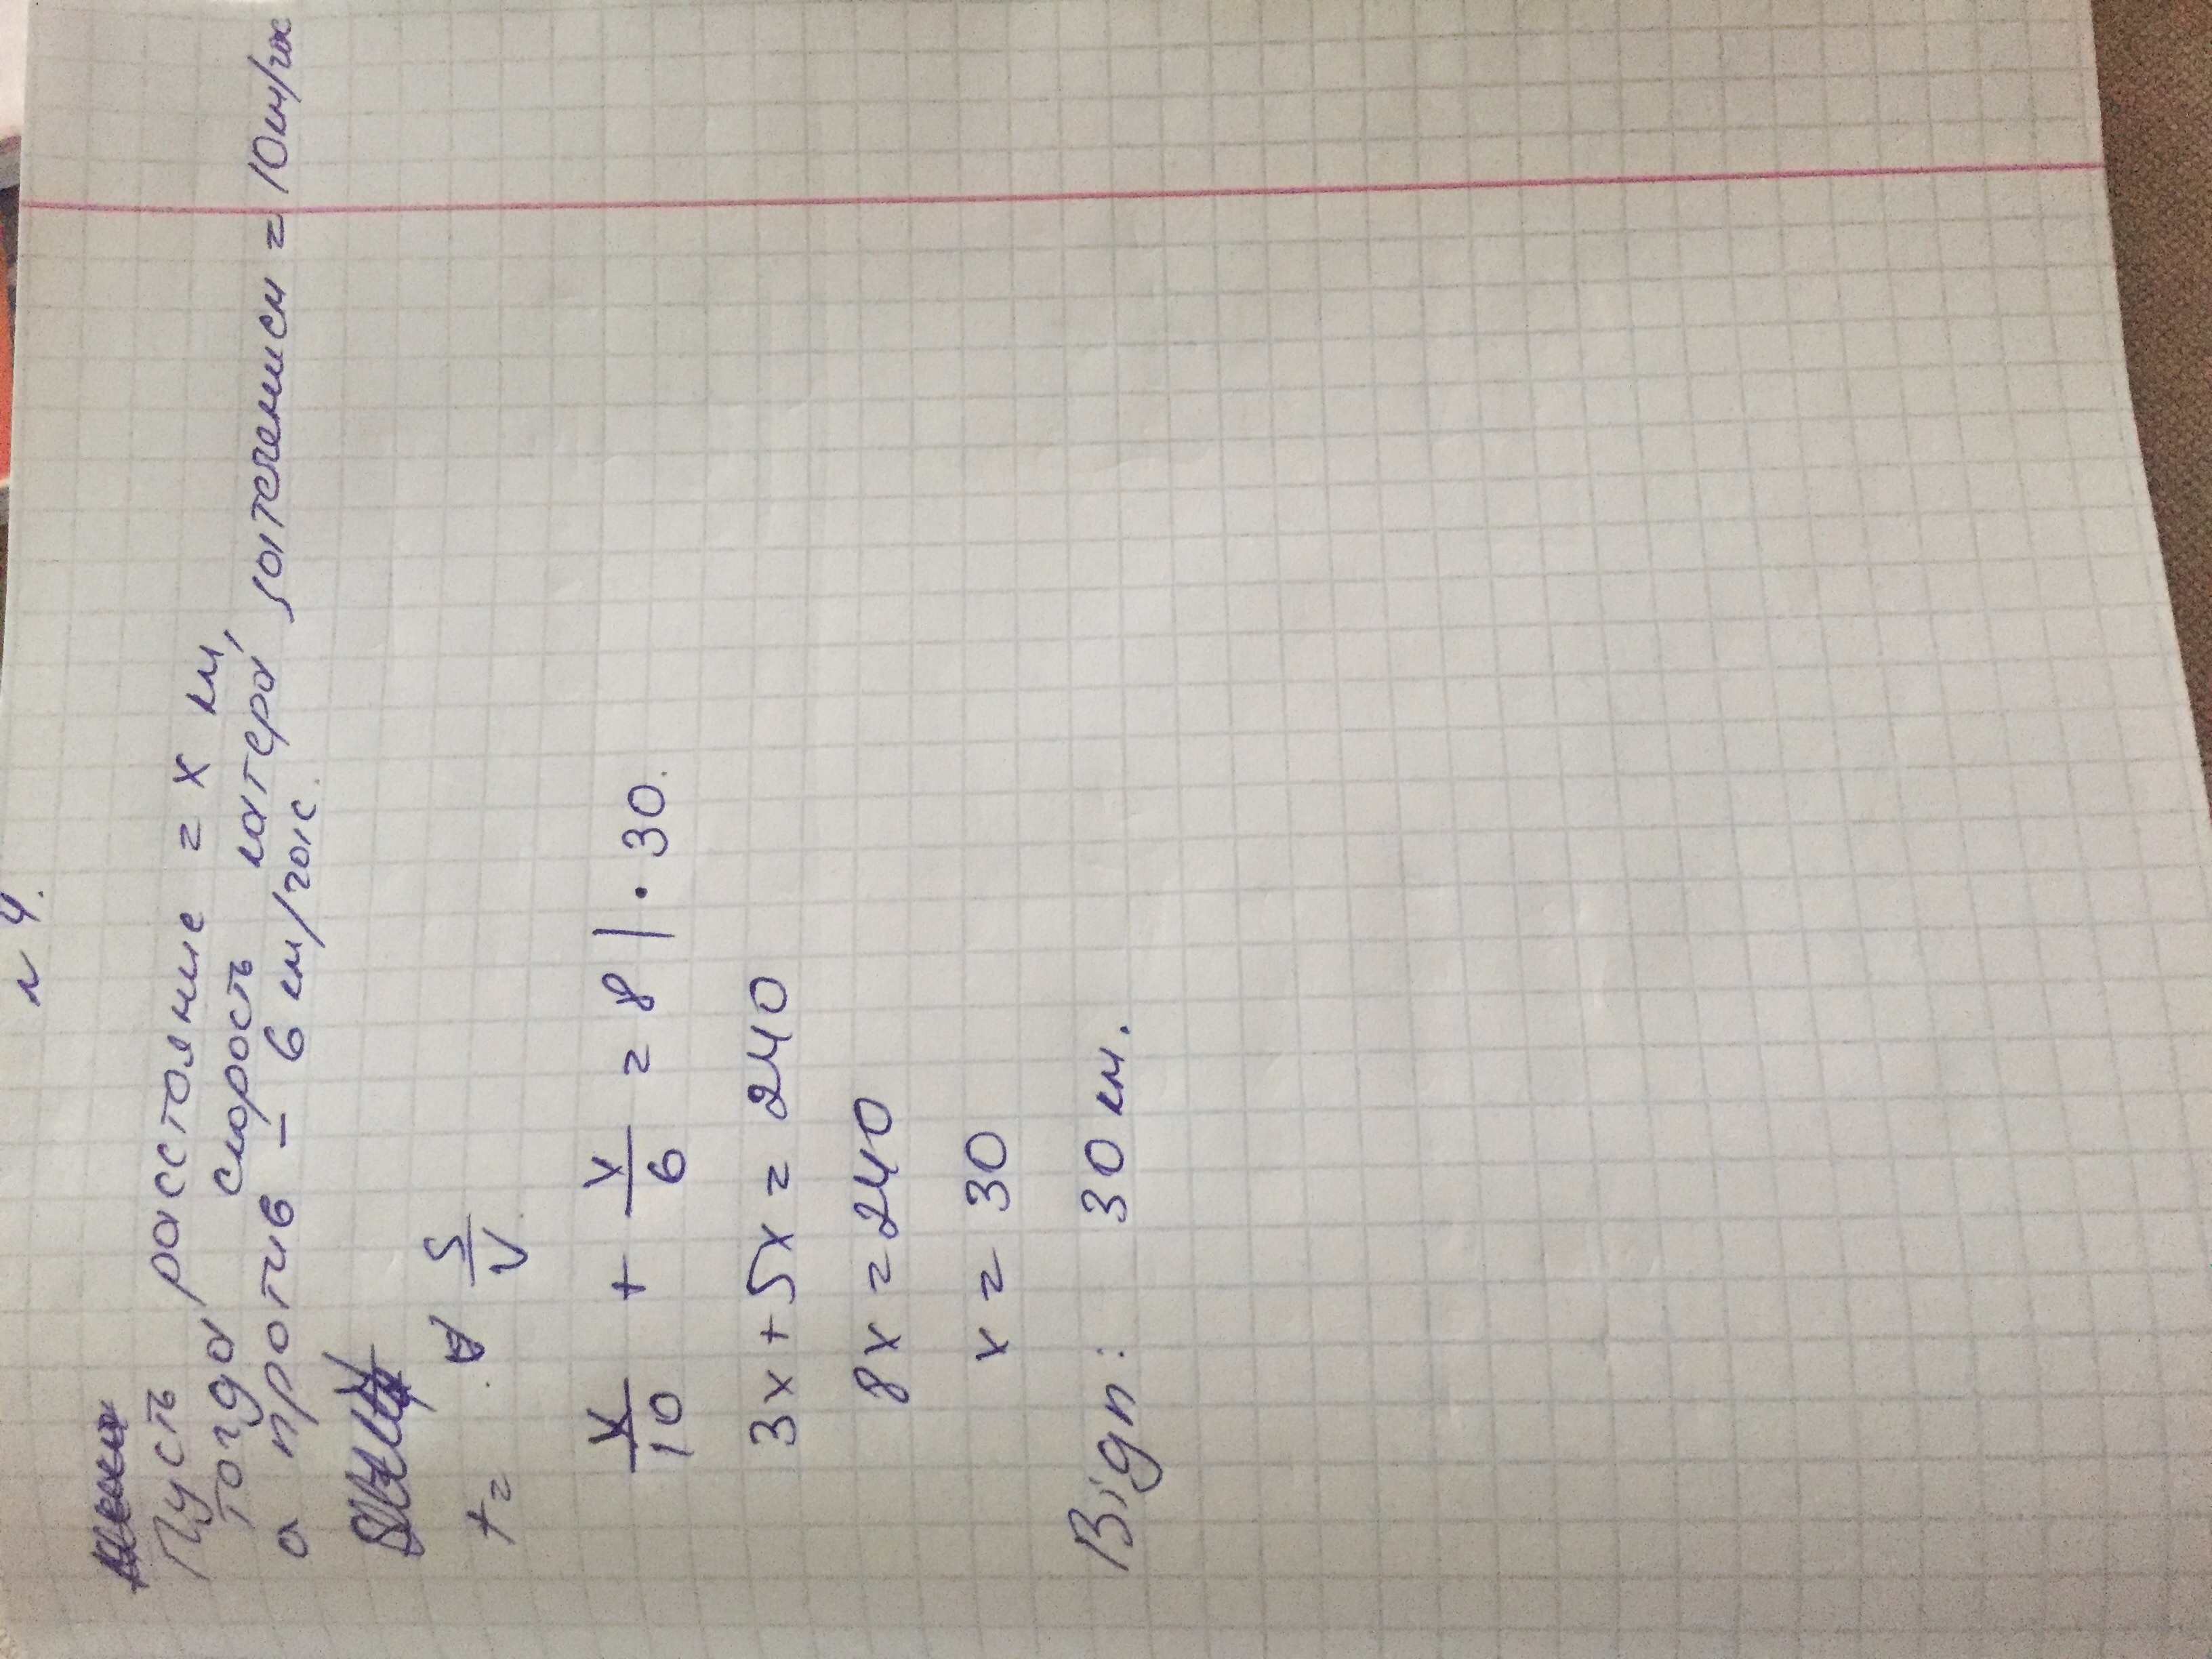 № 4.
Пусть расстояние = х км,
тогда скорость катера, за течением = 10 км/час
а против – 6 км/час.
t = S/V
x/10 + x/6 = 8 | · 30.
3x + 5x = 240
8x = 240
x = 30
Відп: 30 км.